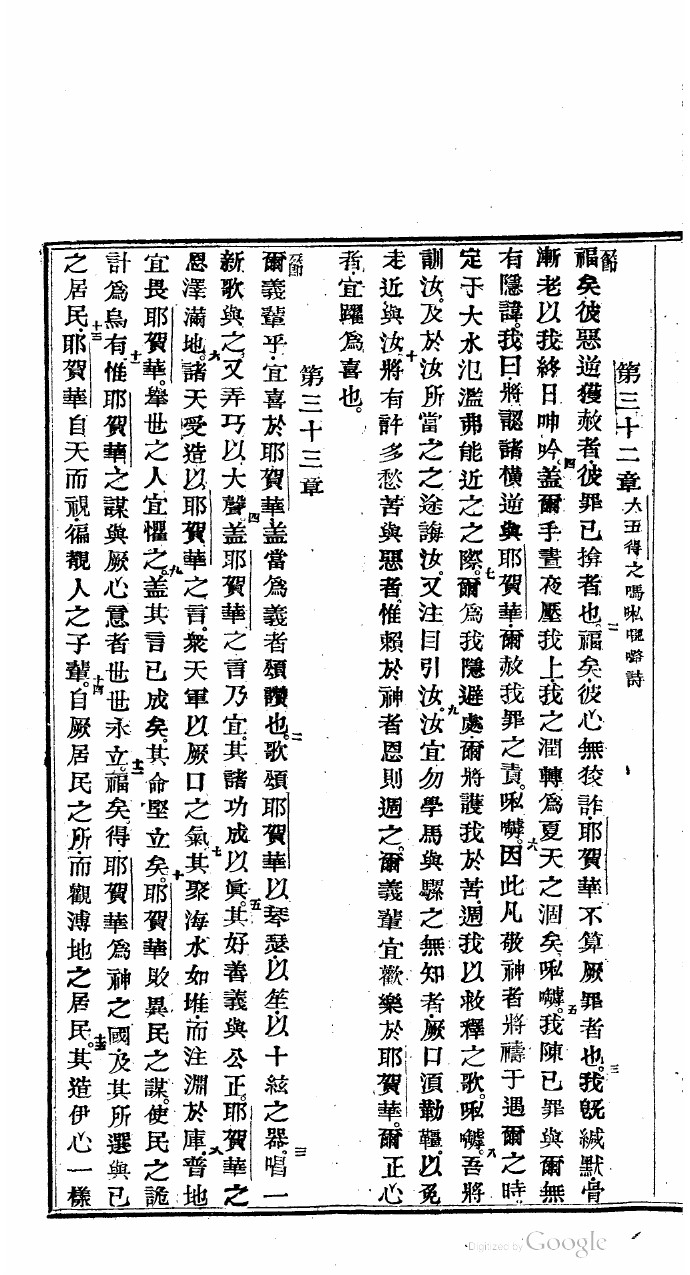 第三十二章 大五得之嗎㕵唲嚕詩
首節 福矣彼惡逆獲赦者彼罪已揜者也。二福矣彼心無狡詐耶賀華不算厥罪者也。三我旣緘默骨
漸老以我終日呻吟四盖爾手晝夜壓我上我之潤轉爲夏天之涸矣㕵嚩。五我陳已罪與爾無
有隱諱。我曰將認諸橫逆與耶賀華爾赦我罪之責。㕵嚩。六因此凡敬神者將禱于遇爾之時
定于大水氾濫弗能近之之際。七爾爲我隱避處爾將護我於苦週我以救釋之歌。㕵嚩。八吾將
訓汝。及於汝所當之之途誨汝。又注目引汝。九汝宜勿學馬與騾之無知者厥口須勒韁以免
走近與汝。十將有許多愁苦與惡者惟賴於神者恩則週之。爾義輩宜歡樂於耶賀華。爾正心
者宜躍爲喜也。
第三十三章
首節 爾義輩乎宜喜於耶賀華盖當爲義者頌讚也。二歌頌耶賀華以琴瑟以笙以十絃之器。三唱一
新歌與之又弄巧以大聲。四盖耶賀華之言乃宜。其諸功成以眞。五其好善義與公正。耶賀華之
恩澤滿地。六諸天受造以耶賀華之言。衆天軍以厥口之氣。七其聚海水如堆而注淵於庫。八普地
宜畏耶賀華。舉世之人宜懼之。九盖其言已成矣。其命堅立矣。十耶賀華敗異民之謀。使民之詭
計爲烏有。十一惟耶賀華之謀與厥心意者世世永立。十二福矣得耶賀華爲神之國及其所選與已
之居民。十三耶賀華自天而視徧覩人之子輩。十四自厥居民之所而觀溥地之居民。十五其造伊心一樣
Digitized by Google